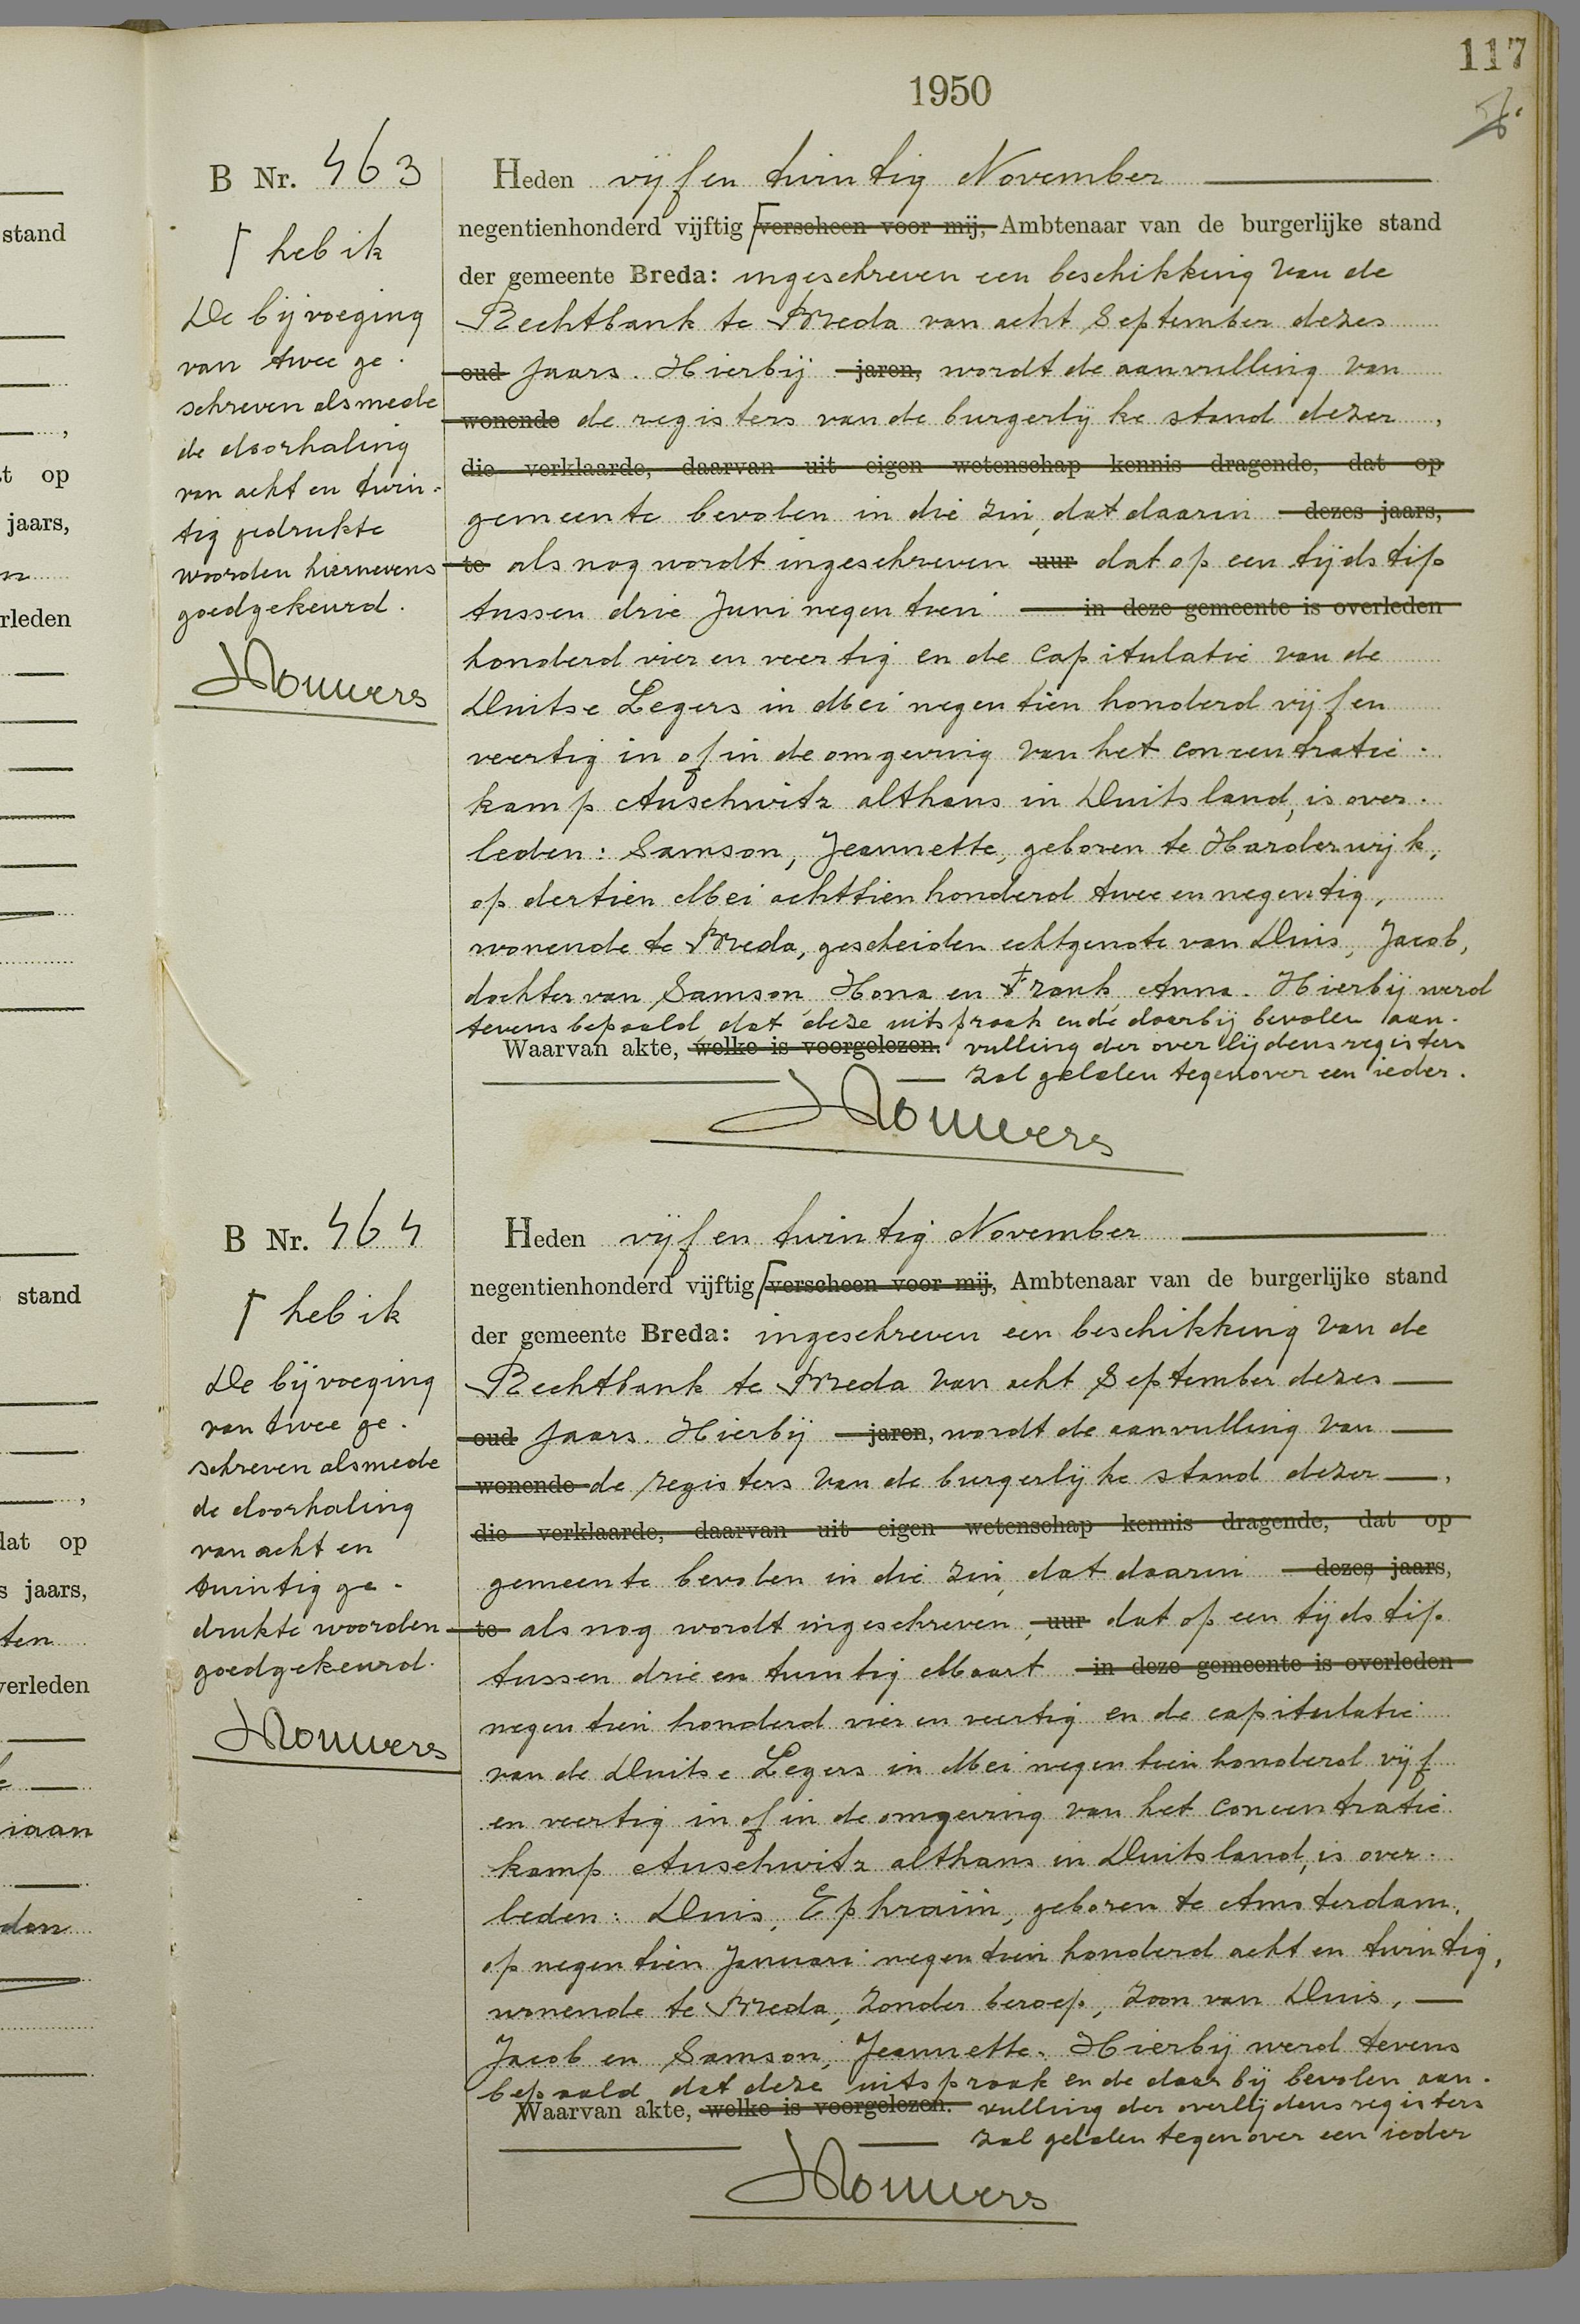 117
1950
B Nr. 463
⌈ heb ik
De bijvoeging
van twee ge-
schreven alsmede
de doorhaling
van acht en twin-
tig gedrukte
woorden hiernevens
goedgekeurd.
Heden vijf en twintig November
negentienhonderd vijftig ⌈verscheen voor mij, Ambtenaar van de burgerlijke stand
der gemeente Breda: ingeschreven een beschikking van de
Rechtbank te Breda van acht September dezes
oud jaars. Hierbij jaren, wordt de aanvulling van
wonende de registers van de burgerlijke stand dezer ,
die verklaarde, daarvan uit eigen wetenschap kennis dragende, dat op
gemeente bevolen in die zin, dat daarin dezes jaars,
te alsnog wordt ingeschreven uur dat op een tijdstip
tussen drie Juni negentien in deze gemeente is overleden
honderd vier en veertig en de capitulatie van de
Duitse Legers in Mei negentien honderd vijf en
veertig in of in de omgeving van het concentratie-
kamp Auschwitz althans in Duitsland, is over-
leden: Samson, Jeannette, geboren te Harderwijk,
op dertien Mei achttienhonderd twee en negentig,
wonende te Breda, gescheiden echtgenote van Duis, Jacob,
dochter van Samson, Hona en Frank, Anna. Hierbij werd
tevens bepaald, dat deze uitspraak en de daarbij bevolen aan-
Waarvan akte, welke is voorgelezen. vulling der overlijdensregisters
zal gelden tegenover een ieder.
B Nr. 464
⌈ heb ik
De bijvoeging
van twee ge-
schreven alsmede
de doorhaling
van acht en
twintig ge-
drukte woorden
goedgekeurd.
Heden vijf en twintig November
negentienhonderd vijftig ⌈verscheen voor mij, Ambtenaar van de burgerlijke stand
der gemeente Breda: ingeschreven een beschikking van de
Rechtbank te Breda van acht September dezes
oud jaars. Hierbij jaren, wordt de aanvulling van
wonende de registers van de burgerlijke stand dezer ,
die verklaarde, daarvan uit eigen wetenschap kennis dragende, dat op
gemeente bevolen in die zin, dat daarin dezes jaars,
te alsnog wordt ingeschreven, uur dat op een tijdstip
tussen drie en twintig Maart in deze gemeente is overleden
negentien honderd vier en veertig en de capitulatie
van de Duitse Legers in Mei negentien honderd vijf
en veertig in of in de omgeving van het concentratie
kamp Auschwitz althans in Duitsland, is over-
leden: Duis, Ephraïm, geboren te Amsterdam,
op negentien Januari negentien honderd acht en twintig,
wonende te Breda, zonder beroep, zoon van Duis,
Jacob en Samson, Jeannette. Hierbij werd tevens
bepaald, dat deze uitspraak en de daarbij bevolen aan-
Waarvan akte, welke is voorgelezen. vulling der overlijdensregisters
zal gelden tegenover een ieder
stand
op
jaars,
rleden
stand
dat op
s jaars,
ten
verleden
iaan
den